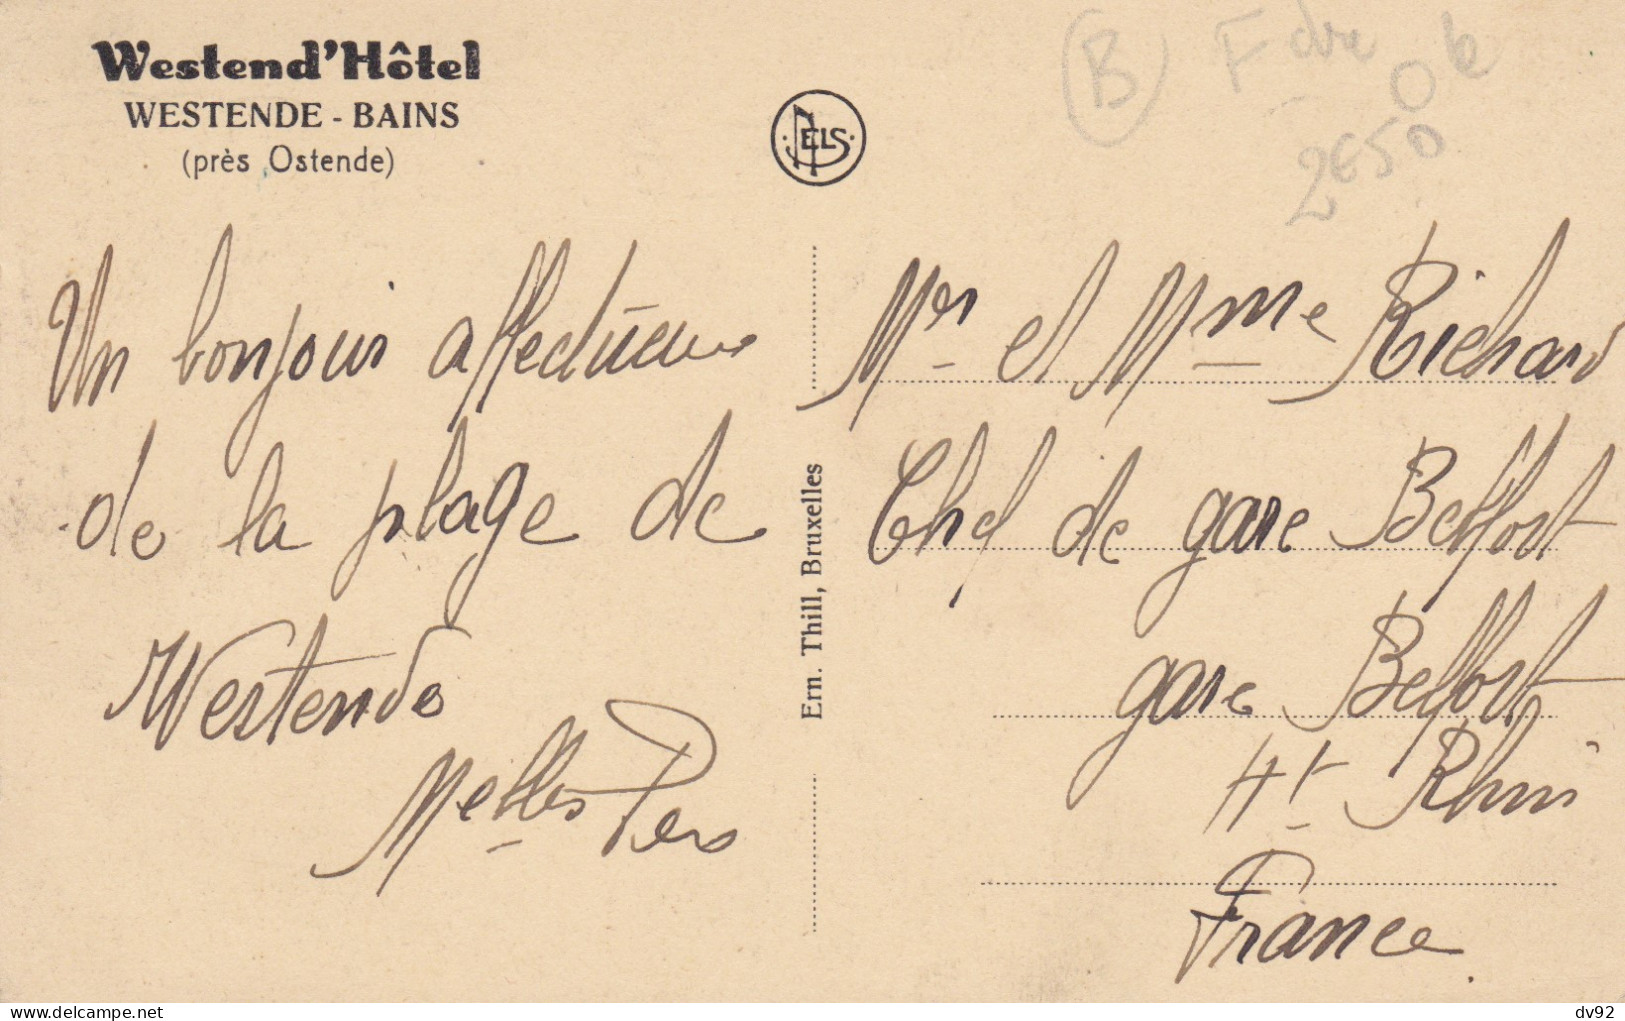 Westend'Hôtel
WESTENDE - BAINS
(près Ostende)
NELS
B
2€50
Un bonjour affectueux
de la plage de
Westende
Melles
Ern. Thill, Bruxelles
Mr et Mme Richard
Chef de gare Belfort
gare Belfort
Ht Rhin
France
delcampe.net
dv92